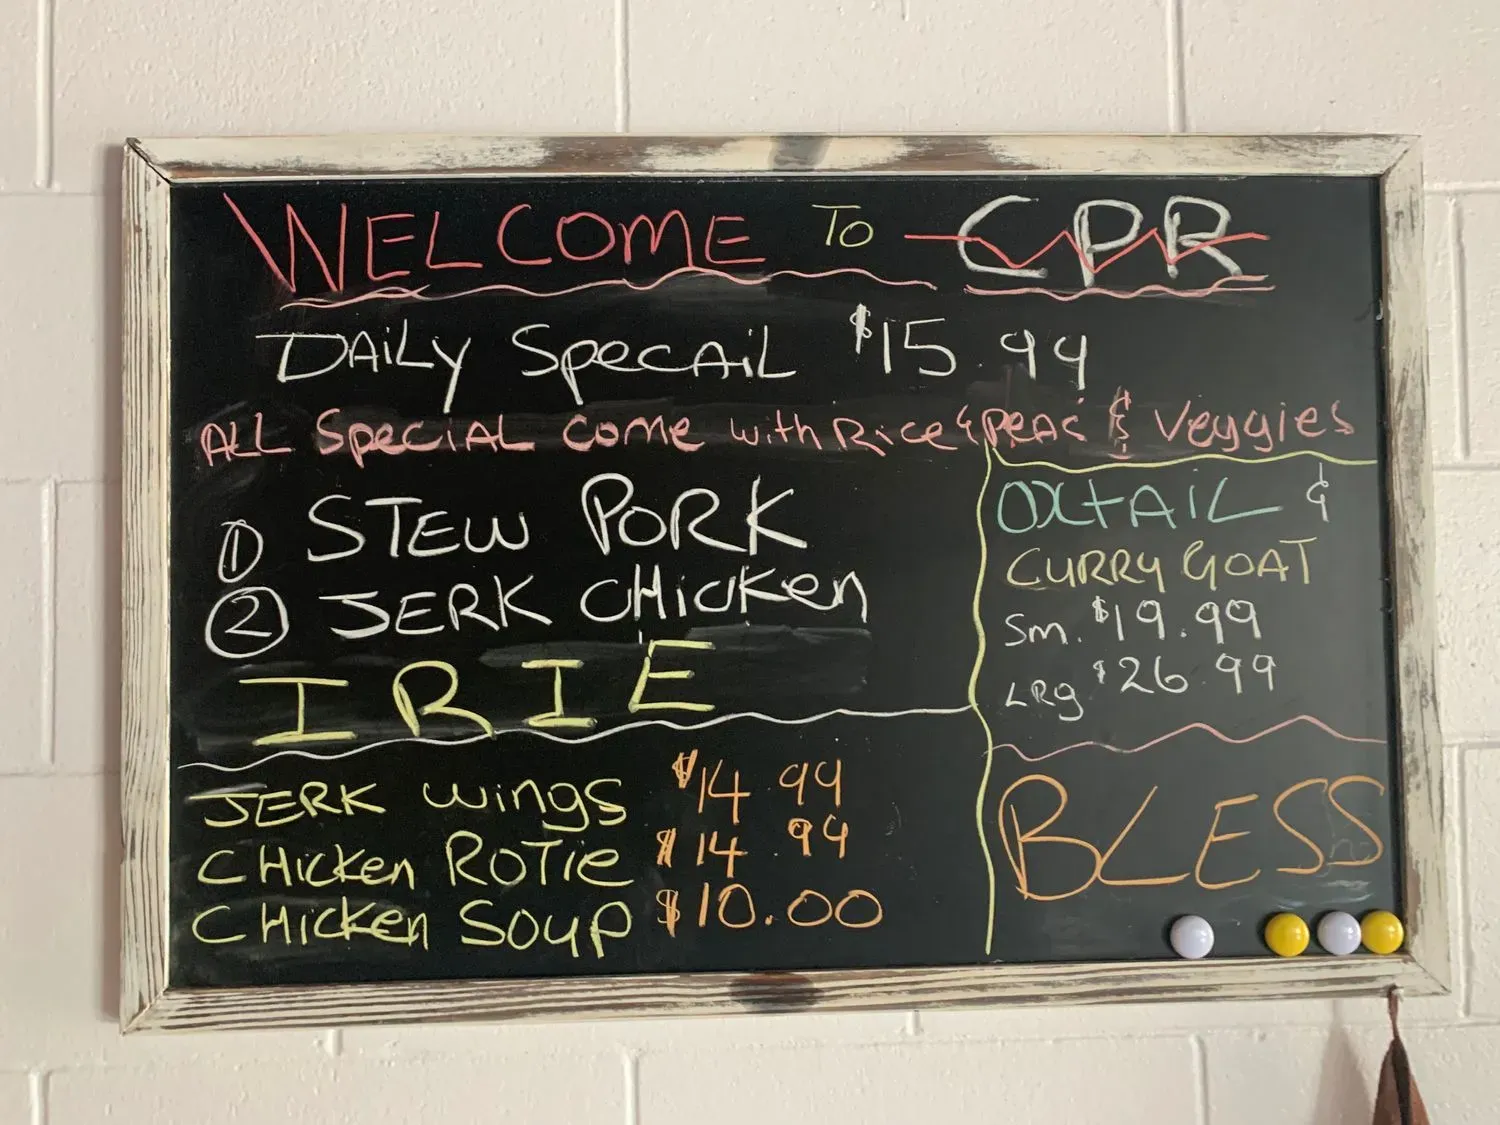 WELCOME TO CPR
DAILY SPECAIL $15.99
ALL SPECIAL COME WITH RICE & PEAS & VEGGIES
① STEW PORK
② JERK CHICKEN
IRIE
OXTAIL &
CURRY GOAT
Sm. $19.99
LRg $26.99
JERK WINGS $14.99
CHICKEN ROTIE $14.99
CHICKEN SOUP $10.00
BLESS